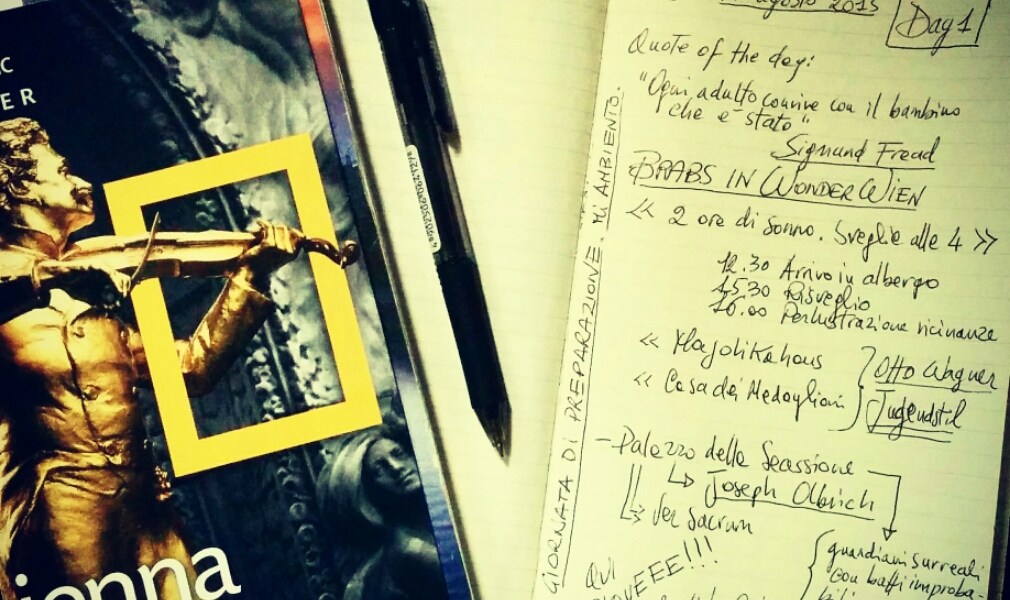 C
ER
ienna
agosto 2015
Day 1
Quote of the day:
"Ogni adulto convive con il bambino
che è stato"
Sigmund Freud
BRABS IN WONDERWIEN
<< 2 ore di sonno. Sveglie alle 4 >>
12.30 Arrivo in albergo
15.30 Risveglio
16.00 Perlustrazione vicinanze
<< Majolikahaus
<< Casa dei Medaglioni
Otto Wagner
Jugendstil
- Palazzo della Secessione
Joseph Olbrich
Ver Sacrum
guardiani surreali
con baffi improba-
QUI
PIOVEEE!!!
GIORNATA DI PREPARAZIONE. MI AMBIENTO.